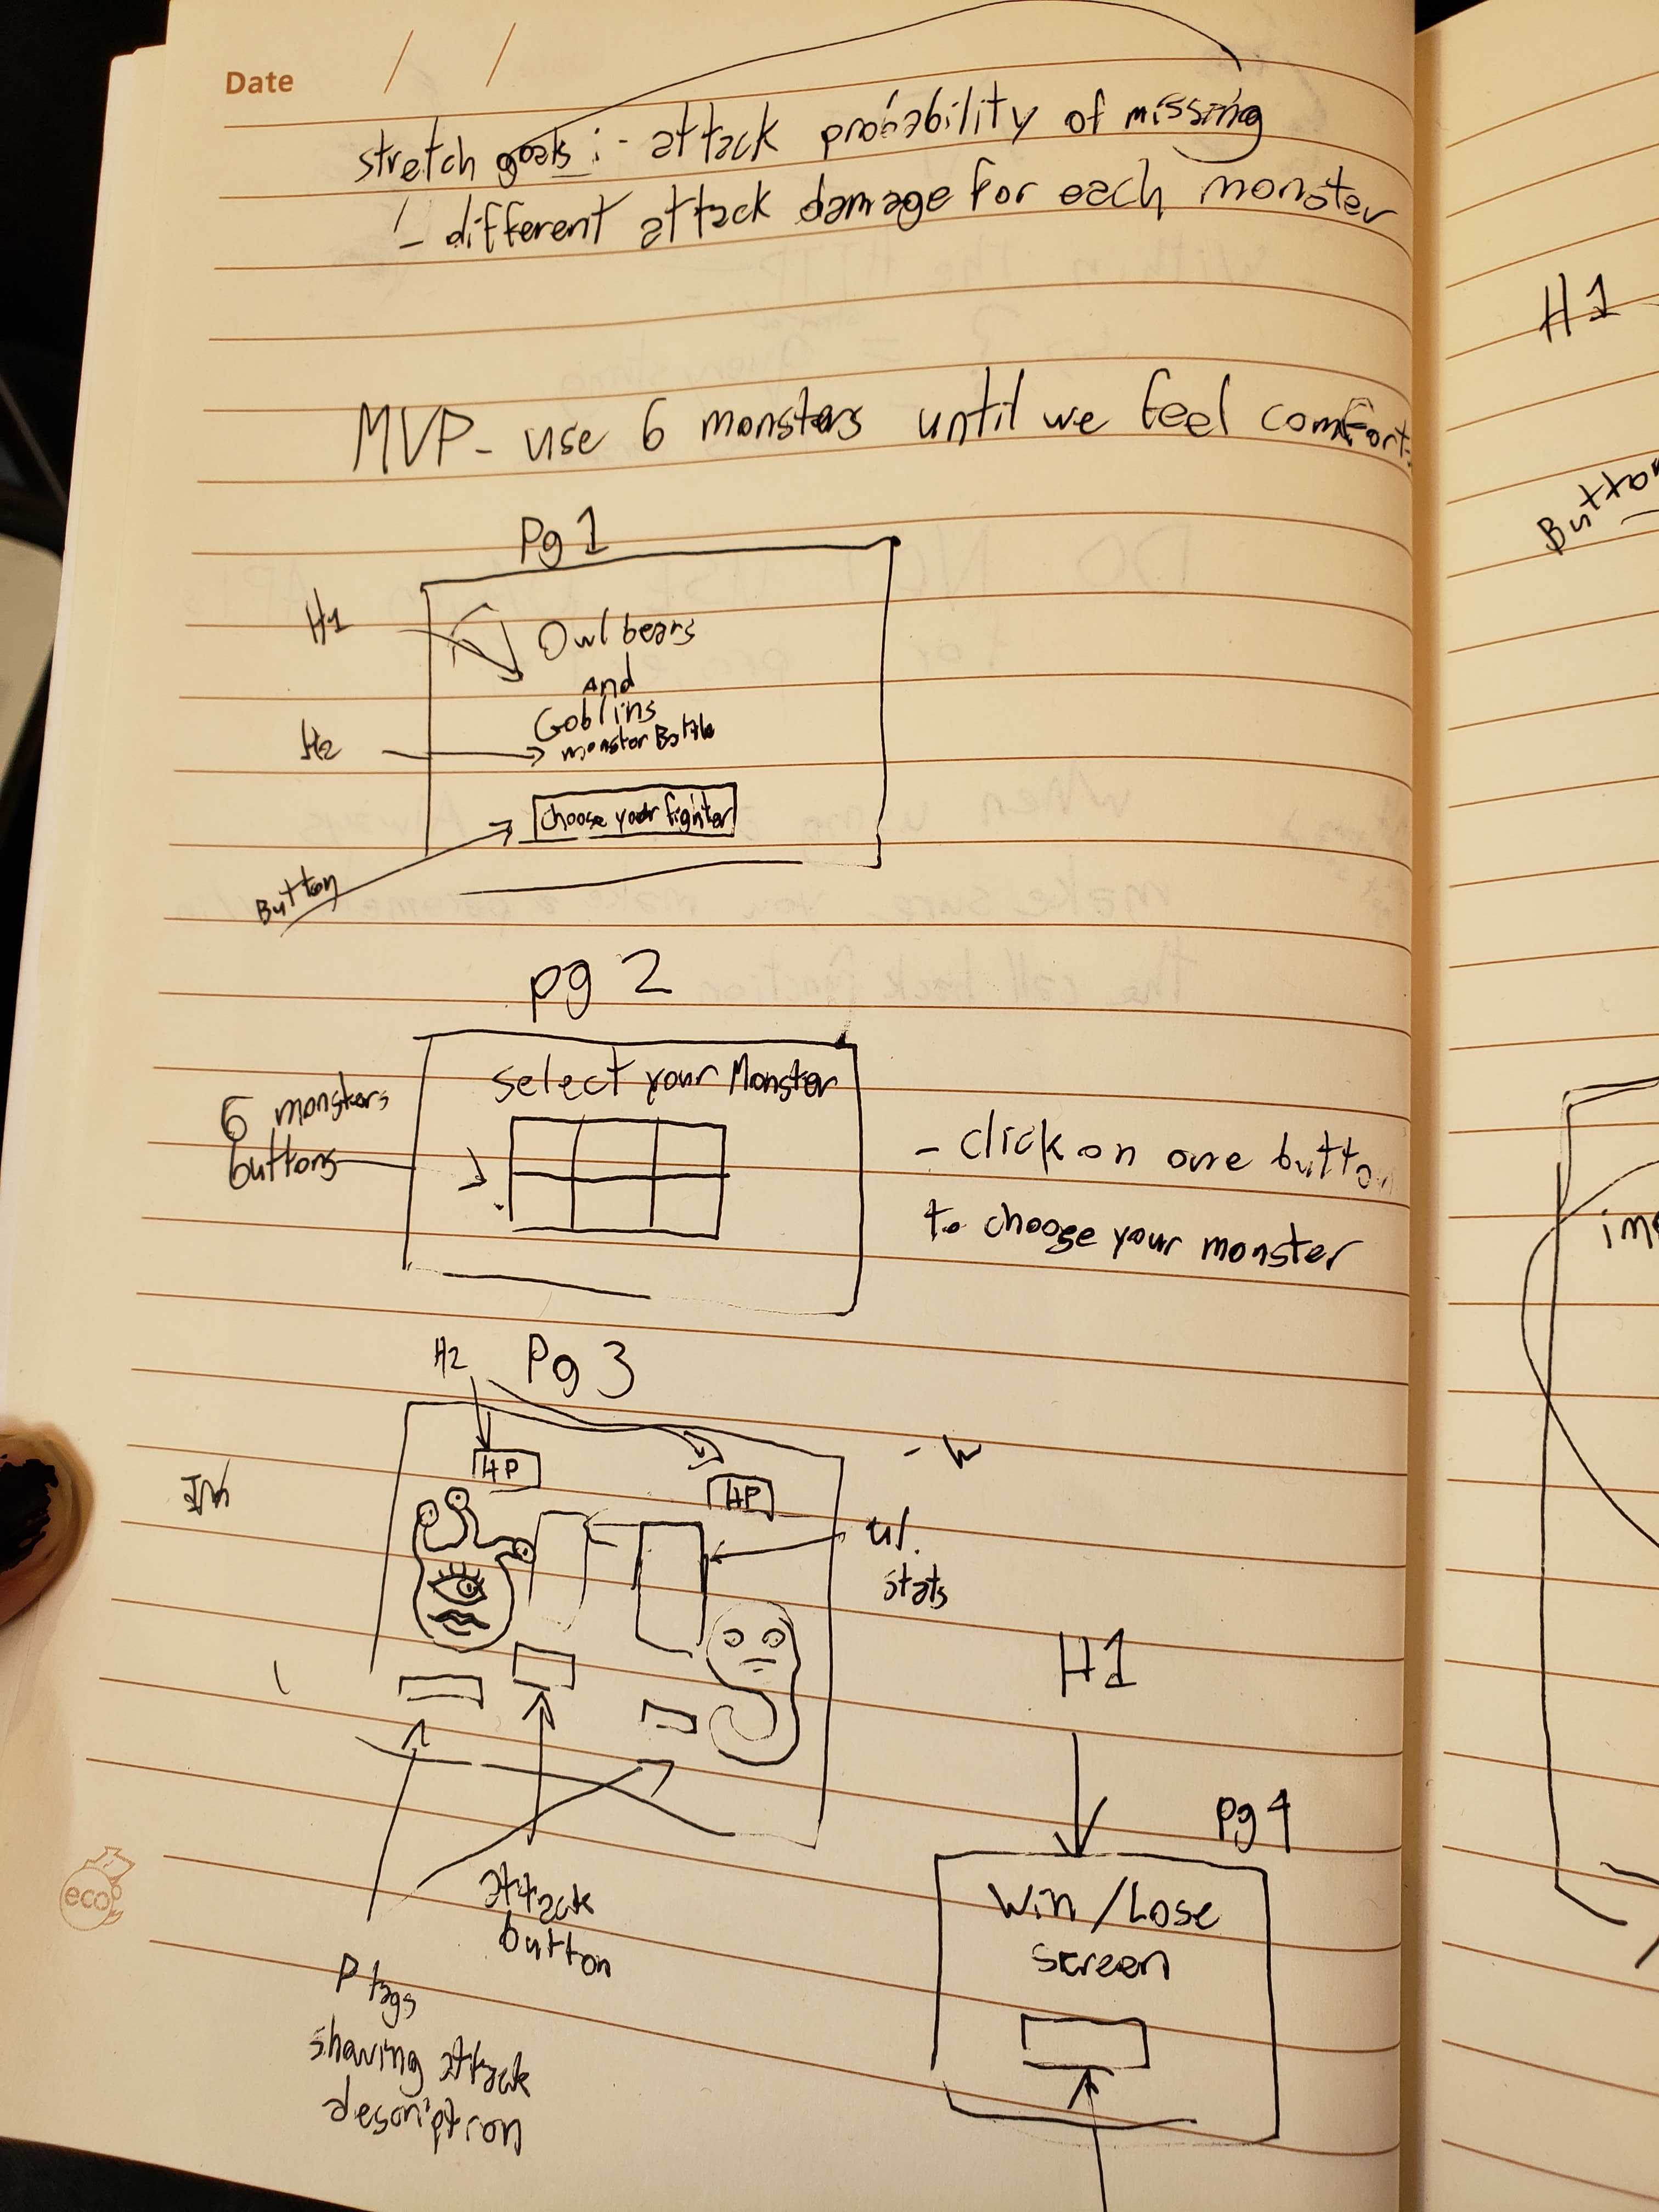 Date / /
stretch goals : - attack probability of missing
- different attack damage for each monster
MVP - use 6 monsters until we feel comfort
Pg 1
H1
Owlbears
And
Goblins
H2
monster Battle
choose your fighter
Button
pg 2
select your Monster
6 monsters
buttons
- click on one button
to choose your monster
H2
Pg 3
HP
HP
- W
ul.
stats
H1
pg 4
Win / Lose
screen
attack
button
P tags
showing attack
description
eco
H1
Button